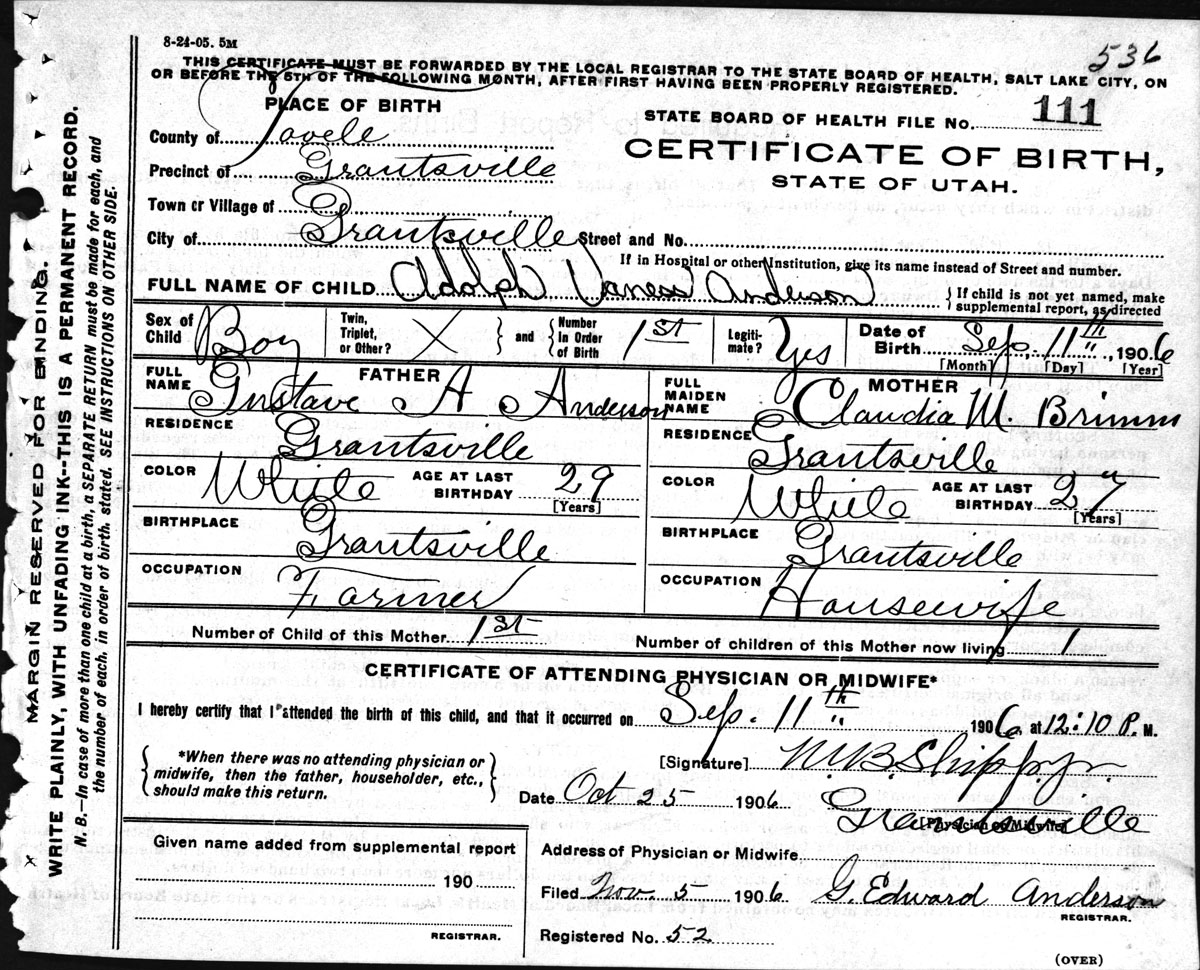 8-24-05. 5M
536
THIS CERTIFICATE MUST BE FORWARDED BY THE LOCAL REGISTRAR TO THE STATE BOARD OF HEALTH, SALT LAKE CITY, ON
OR BEFORE THE 5TH OF THE FOLLOWING MONTH, AFTER FIRST HAVING BEEN PROPERLY REGISTERED.
PLACE OF BIRTH
STATE BOARD OF HEALTH FILE No. 111
County of Tooele
CERTIFICATE OF BIRTH,
Precinct of Grantsville
STATE OF UTAH.
Town or Village of
City of Grantsville Street and No.
If in Hospital or other Institution, give its name instead of Street and number.
FULL NAME OF CHILD Adolph Vaness Anderson { If child is not yet named, make supplemental report, as directed
Sex of Child Boy Twin, Triplet, or Other? X } and { Number In Order of Birth 1st Legitimate? Yes Date of Birth Sep. 11th, 1906
[Month] [Day] [Year]
FATHER
MOTHER
FULL NAME Gustave A Anderson
FULL MAIDEN NAME Claudia M. Brimm
RESIDENCE Grantsville
RESIDENCE Grantsville
COLOR White AGE AT LAST BIRTHDAY 29 [Years]
COLOR White AGE AT LAST BIRTHDAY 27 [Years]
BIRTHPLACE Grantsville
BIRTHPLACE Grantsville
OCCUPATION Farmer
OCCUPATION Housewife
Number of Child of this Mother 1st Number of children of this Mother now living 1
CERTIFICATE OF ATTENDING PHYSICIAN OR MIDWIFE*
I hereby certify that I attended the birth of this child, and that it occurred on Sep. 11th 1906 at 12:10 P. M.
{ *When there was no attending physician or
midwife, then the father, householder, etc.,
should make this return. }
[Signature] M.B. Shipp Jr.
Date Oct 25 1906 Grantsville
[Physician or Midwife]
Given name added from supplemental report
190
REGISTRAR.
Address of Physician or Midwife
Filed Nov. 5 1906 G. Edward Anderson
REGISTRAR.
Registered No. 52
(OVER)
MARGIN RESERVED FOR BINDING.
WRITE PLAINLY, WITH UNFADING INK--THIS IS A PERMANENT RECORD.
N. B.—In case of more than one child at a birth, a SEPARATE RETURN must be made for each, and
the number of each, in order of birth, stated. SEE INSTRUCTIONS ON OTHER SIDE.